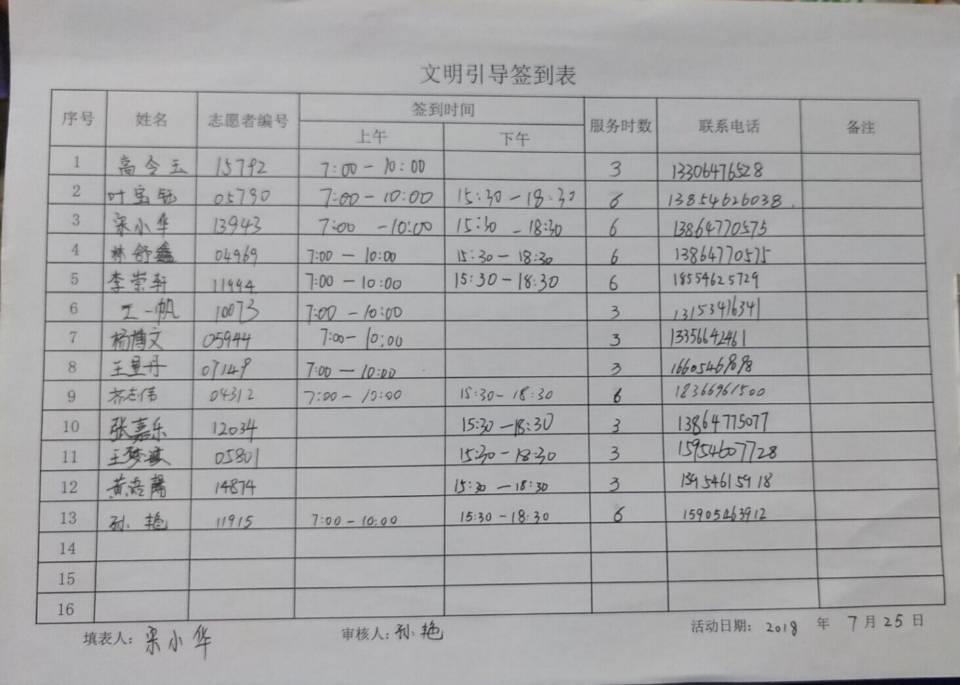 文明引导签到表
序号 姓名 志愿者编号 签到时间 服务时数 联系电话 备注
上午 下午
1 高令玉 15792 7:00-10:00 3 13306476528
2 叶宝钰 05790 7:00-10:00 15:30-18:30 6 13854626038
3 宋小华 13943 7:00-10:00 15:30-18:30 6 13864770575
4 林舒鑫 04969 7:00-10:00 15:30-18:30 6 13864770575
5 李崇轩 11994 7:00-10:00 15:30-18:30 6 18554625729
6 王一帆 10073 7:00-10:00 3 13153416341
7 杨博文 05944 7:00-10:00 3 13356642461
8 王显丹 07149 7:00-10:00 3 16605469898
9 齐志伟 04312 7:00-10:00 15:30-18:30 6 18366961500
10 张嘉乐 12034 15:30-18:30 3 13864775077
11 王梦 05801 15:30-18:30 3 15954607728
12 黄 14874 15:30-18:30 3 15954615918
13 孙艳 11915 7:00-10:00 15:30-18:30 6 15905463912
14
15
16
填表人:宋小华 审核人:孙艳 活动日期:2018 年 7月25日